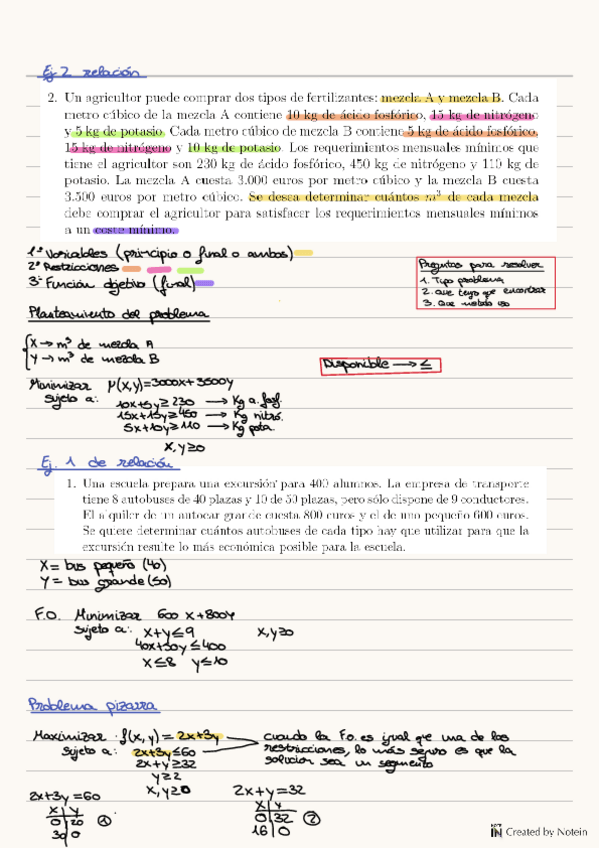 Ej 2 relación
2. Un agricultor puede comprar dos tipos de fertilizantes: mezcla A y mezcla B. Cada
metro cúbico de la mezcla A contiene 10 kg de ácido fosfórico, 15 kg de nitrógeno
y 5 kg de potasio. Cada metro cúbico de mezcla B contiene 5 kg de ácido fosfórico,
15 kg de nitrógeno y 10 kg de potasio. Los requerimientos mensuales mínimos que
tiene el agricultor son 230 kg de ácido fosfórico, 450 kg de nitrógeno y 110 kg de
potasio. La mezcla A cuesta 3.000 euros por metro cúbico y la mezcla B cuesta
3.500 euros por metro cúbico. Se desea determinar cuántos m³ de cada mezcla
debe comprar el agricultor para satisfacer los requerimientos mensuales mínimos
a un coste mínimo.
1º Variables (principio o final o ambos)
2º Restricciones
3º Función objetivo (final)
Preguntas para resolver
1. Tipo problema
2. que tengo que encontrar
3. Que metodo uso
Planteamiento del problema
X → m³ de mezcla A
Y → m³ de mezcla B
Disponible → ≤
Minimizar f(x,y)=3000x+3500y
Sujeto a: 10x+5y≥230 → Kg a. fosf.
15x+15y≥450 → Kg nitró.
5x+10y≥110 → Kg pota.
X,y≥0
Ej. 1 de relación
1. Una escuela prepara una excursión para 400 alumnos. La empresa de transporte
tiene 8 autobuses de 40 plazas y 10 de 50 plazas, pero sólo dispone de 9 conductores.
El alquiler de un autocar grande cuesta 800 euros y el de uno pequeño 600 euros.
Se quiere determinar cuántos autobuses de cada tipo hay que utilizar para que la
excursión resulte lo más económica posible para la escuela.
X = bus pequeño (40)
Y = bus grande (50)
F.O. Minimizar 600x+800y
sujeto a: x+y≤9 x,y≥0
40x+50y≤400
x≤8 y≤10
Problema pizarra
Maximizar f(x,y) = 2x+3y → cuando la F.o. es igual que una de las
Sujeto a: 2x+3y≤60 restricciones, lo más seguro es que la
2x+y≥32 solucion sea un segmento
y≥2
x,y≥0
2x+3y=60 2x+y=32
X Y X Y
0 20 ① 0 32 ②
30 0 16 0
NOTE IN Created by Notein